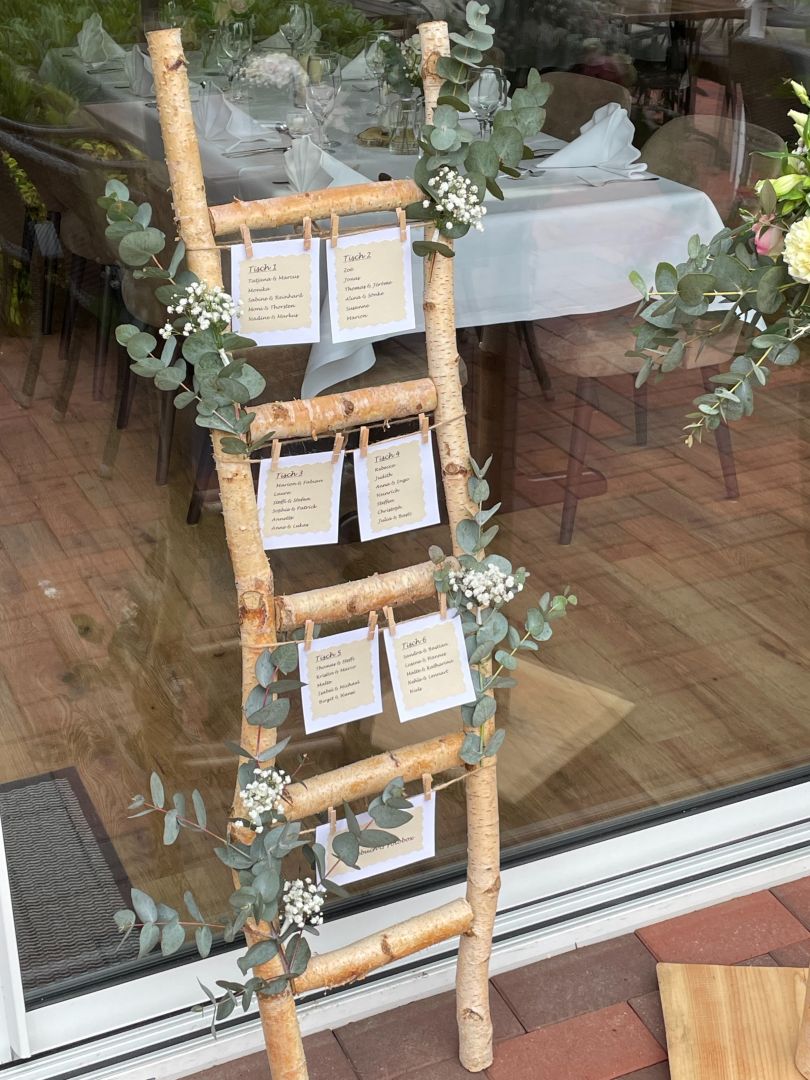 Tisch 1
Tatjana & Marcus
Monika
Sabine & Reinhard
Moni & Thorsten
Nadine & Markus
Tisch 2
Zoe
Jonas
Thomas & Jérôme
Alina & Sönke
Susanne
Marion
Tisch 3
Marion & Fabian
Laura
Steffi & Stefan
Joshia & Patrick
Annette
Anna & Lukas
Tisch 4
Rebecca
Judith
Anna & Ingo
Hinrich
Steffen
Christoph
Julia & Basti
Tisch 5
Thomas & Steffi
Kristin & Marco
Malte
Isabel & Michael
Birgit & Hansi
Tisch 6
Sandra & Bastian
Leonie & Hannes
Malte & Katharina
& Lennart
Niels